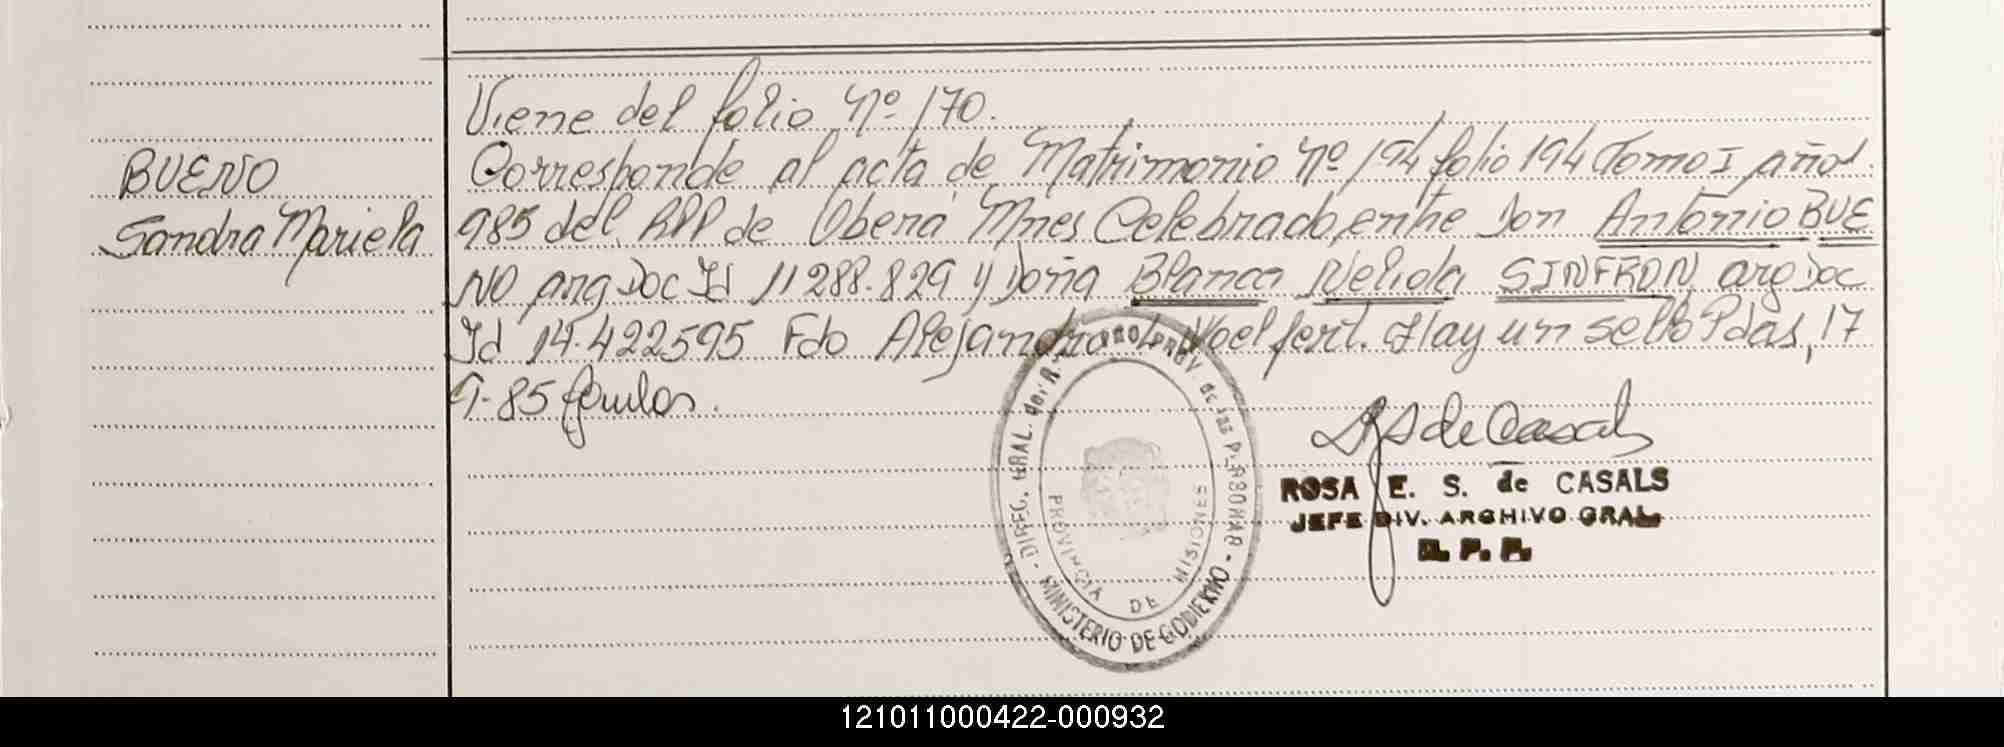 Viene del folio Nº 170.
BUENO
Sandra Mariela
Corresponde al acta de Matrimonio Nº 194 folio 194 Tomo I año 1.
985 del RPP de Oberá Mnes Celebrado entre Don Antonio BUE
NO arg Doc Id 11288.829 y Doña Blanca Nelida SINFRON, arg Doc
Id 14.422595 Fdo Alejandra Woelfert. Hay un sello Pdas, 17
85
DIREC. GRAL. del R. de las PERSONAS - MINISTERIO DE GOBIERNO -
PROVINCIA DE MISIONES
ROSA E. S. de CASALS
JEFE DIV. ARCHIVO GRAL
R. P. P.
121011000422-000932